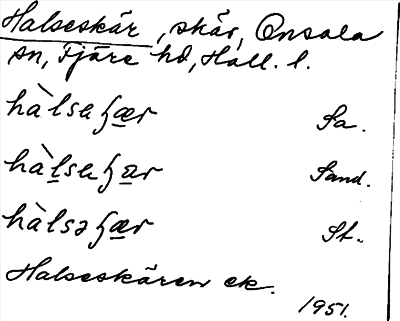 Halseskär, skär, Onsala
sn, Fjäre hd, Hall. l.
hàlsaʃær Sa.
hàlsaʃær Sand.
hàlsəʃær St.
Halseskären ek.
1951.